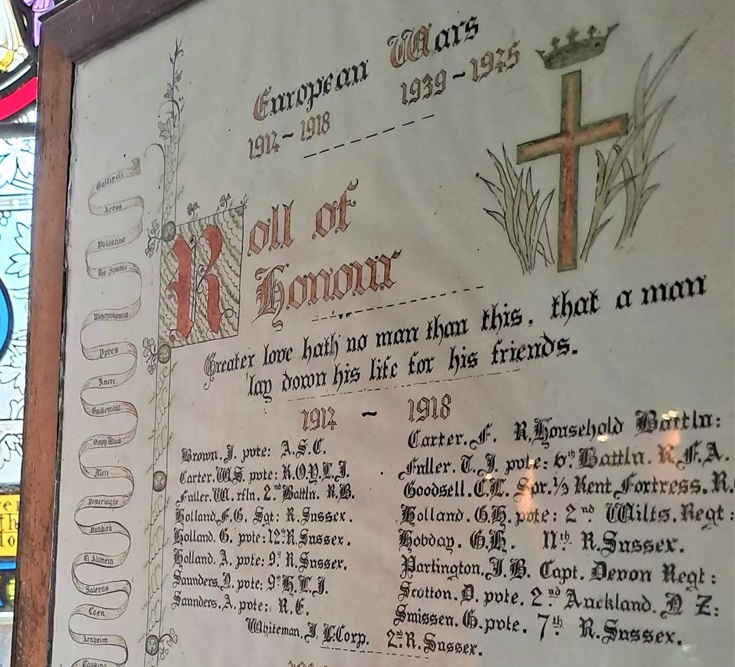 European Wars
1914 - 1918 1939 - 1945
Roll of
Honour
Greater love hath no man than this, that a man
lay down his life for his friends.
1914 - 1918
Brown. J. pvte: A.S.C.
Carter. W.S. pvte: K.O.Y.L.I.
Fuller. W. rfln. 2nd Battln. R.B.
Holland. F.G. Sgt: R. Sussex.
Holland. G. pvte: 12th R. Sussex.
Holland. A. pvte: 9th R. Sussex.
Saunders. D. pvte: 9th H.L.I.
Saunders. A. pvte: R.E.
Carter. F. R. Household Battln:
Fuller. T. J. pvte: 6th Battln. R.F.A.
Goodsell. C.L. Spr. 1/3 Kent Fortress. R.
Holland. G.H. pvte: 2nd Wilts. Regt:
Hobday. G.H. 11th R. Sussex.
Partington. J.B. Capt. Devon Regt:
Scotton. D. pvte. 2nd Auckland. N Z:
Smissen. G. pvte. 7th R. Sussex.
Whiteman. J. L. Corp. 2nd R. Sussex.
Gallipoli
Loos
Palestine
The Somme
Mesopotamia
Ypres
Ancre
Guillemont
Arras
Dunkirk
El Alamein
Salerno
Caen
Arnheim
Cassino